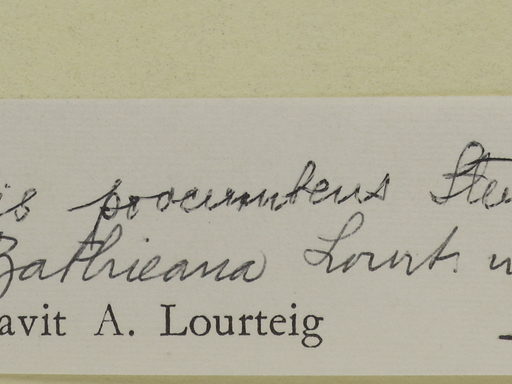 is procumbens Steu
Bathieana Lourt. n
avit A. Lourteig